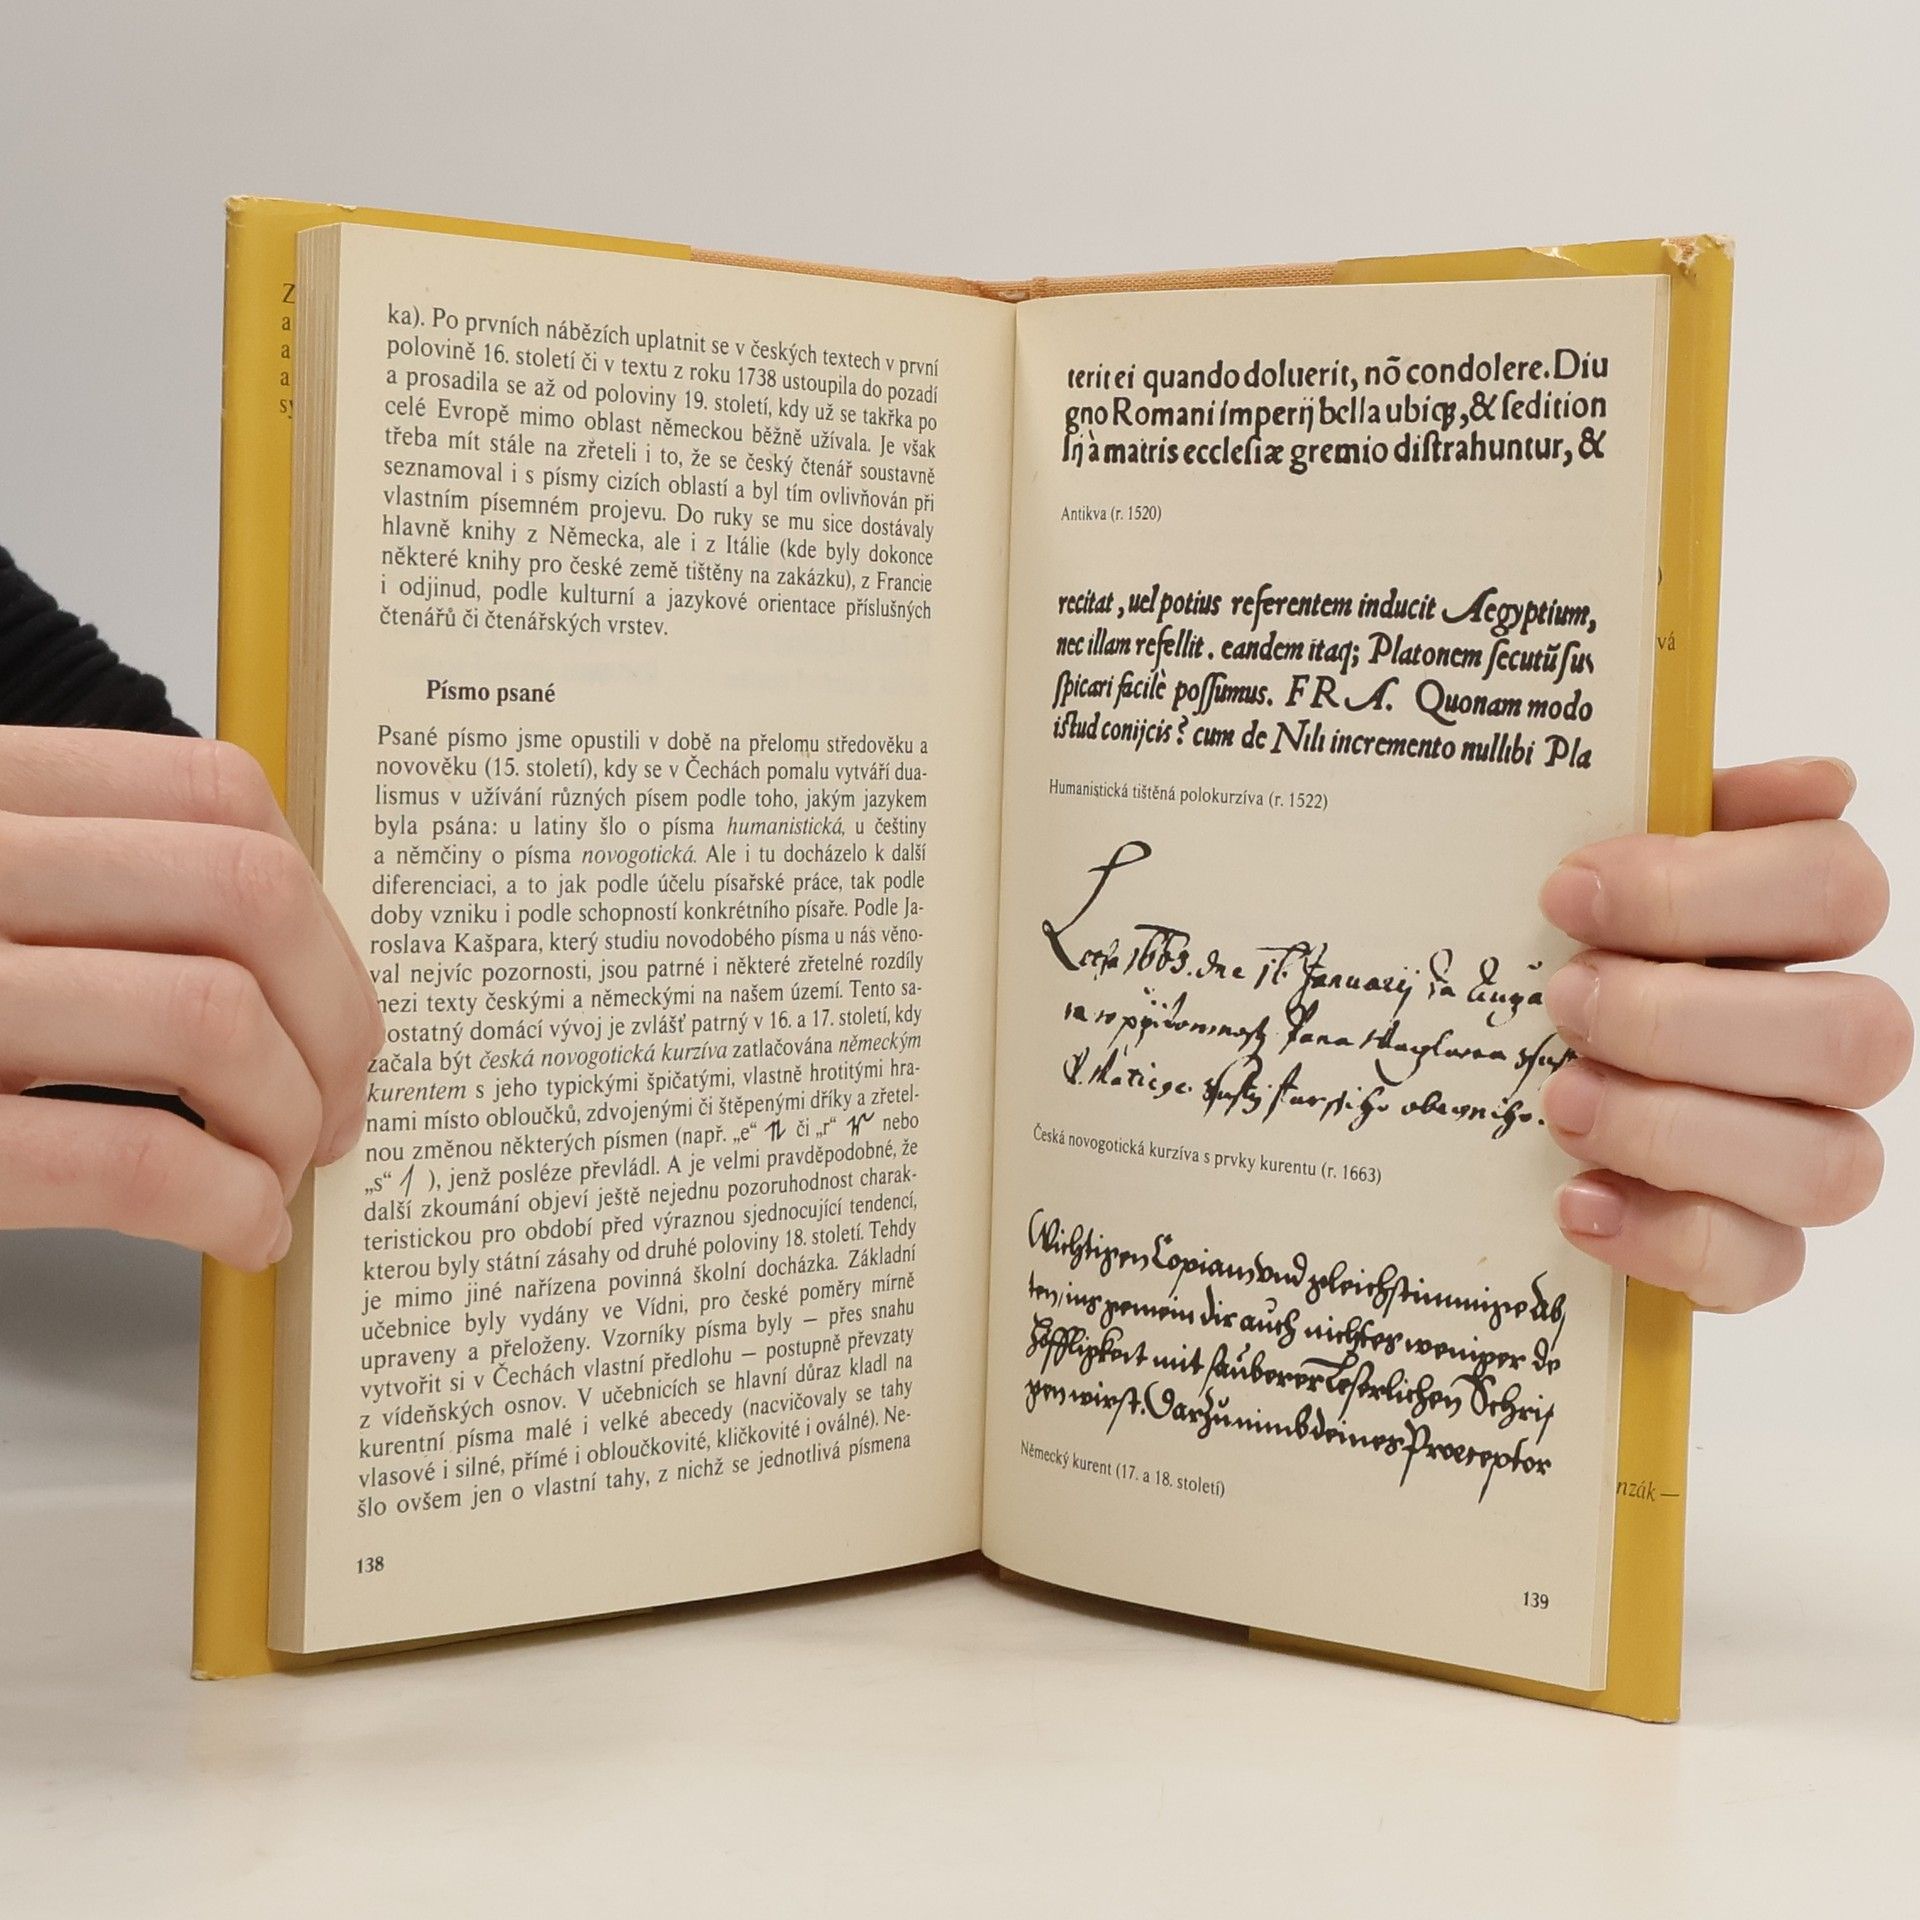 ka). Po prvních nábězích uplatnit se v českých textech v první
polovině 16. století či v textu z roku 1738 ustoupila do pozadí
a prosadila se až od poloviny 19. století, kdy už se takřka po
celé Evropě mimo oblast německou běžně užívala. Je však
třeba mít stále na zřeteli i to, že se český čtenář soustavně
seznamoval i s písmy cizích oblastí a byl tím ovlivňován při
vlastním písemném projevu. Do ruky se mu sice dostávaly
hlavně knihy z Německa, ale i z Itálie (kde byly dokonce
některé knihy pro české země tištěny na zakázku), z Francie
i odjinud, podle kulturní a jazykové orientace příslušných
čtenářů či čtenářských vrstev.
Písmo psané
Psané písmo jsme opustili v době na přelomu středověku a
novověku (15. století), kdy se v Čechách pomalu vytváří dua-
lismus v užívání různých písem podle toho, jakým jazykem
byla psána: u latiny šlo o písma humanistická, u češtiny
a němčiny o písma novogotická. Ale i tu docházelo k další
diferenciaci, a to jak podle účelu písařské práce, tak podle
doby vzniku i podle schopností konkrétního písaře. Podle Ja-
roslava Kašpara, který studiu novodobého písma u nás věno-
val nejvíc pozornosti, jsou patrné i některé zřetelné rozdíly
mezi texty českými a německými na našem území. Tento sa-
mostatný domácí vývoj je zvlášť patrný v 16. a 17. století, kdy
začala být česká novogotická kurzíva zatlačována německým
kurentem s jeho typickými špičatými, vlastně hrotitými hra-
nami místo obloučků, zdvojenými či štěpenými dříky a zřetel-
nou změnou některých písmen (např. „e“ či „r“ nebo
„s“ ), jenž posléze převládl. A je velmi pravděpodobné, že
další zkoumání objeví ještě nejednu pozoruhodnost charak-
teristickou pro období před výraznou sjednocující tendencí,
kterou byly státní zásahy od druhé poloviny 18. století. Tehdy
je mimo jiné nařízena povinná školní docházka. Základní
učebnice byly vydány ve Vídni, pro české poměry mírně
upraveny a přeloženy. Vzorníky písma byly — přes snahu
vytvořit si v Čechách vlastní předlohu — postupně převzaty
z vídeňských osnov. V učebnicích se hlavní důraz kladl na
kurentní písma malé i velké abecedy (nacvičovaly se tahy
vlasové i silné, přímé i obloučkovité, kličkovité i oválné). Ne-
šlo ovšem jen o vlastní tahy, z nichž se jednotlivá písmena
138
terit ei quando doluerit, nõ condolere. Diu
gno Romani imperij bella ubiqꝫ, & ſedition
ſij à matris eccleſiæ gremio diſtrahuntur, &
Antikva (r. 1520)
recitat, uel potius referentem inducit Aegyptium,
nec illam refellit. eandem itaq; Platonem ſecutũ ſus
ſpicari facilè poſſumus. FRA. Quonam modo
iſtud conijcis? cum de Nili incremento nullibi Pla
Humanistická tištěná polokurzíva (r. 1522)
1663. dne Januarij
Pana
Česká novogotická kurzíva s prvky kurentu (r. 1663)
Wichtigen Copiam vnd gleichstimmige Ab
ten, ins gemein dir auch nichtes weniger de
Höffligkeit mit sauberer Leserlichen Schrif
gen wirst. Darzu nimb deines Praeceptor
Německý kurent (17. a 18. století)
139
vá
nzák —